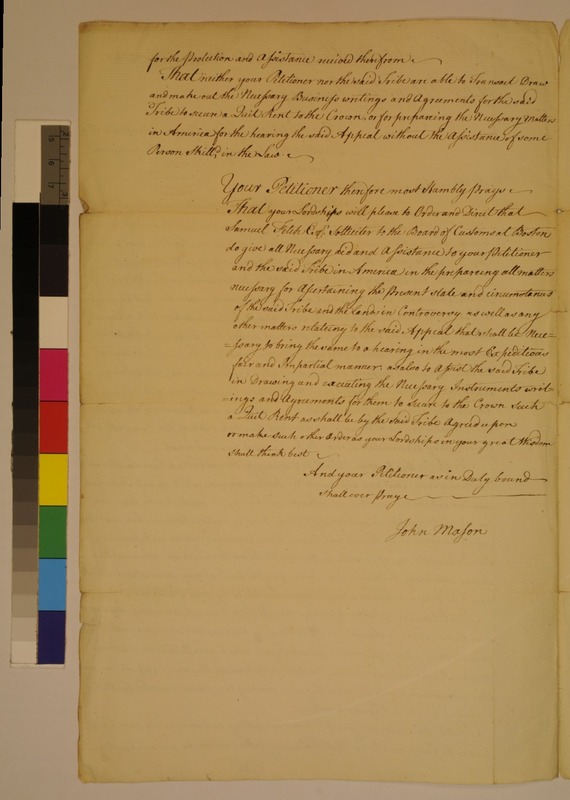 for the Protection and Assistance recived therefrom
That neither your Petitioner nor the said Tribe are able to Transact Draw
and make out the Necessary Business writings and Agreements for the said
Tribe to secure a Quit Rent to the Crown or for prepareing the Necessary Matters
in America for the hearing the said Appeal without the Assistance of some
Person Skill'd in the Law
Your Petitioner therefore most Humbly Prays
That your Lordships will please to Order and Direct that
Samuel Fitch Esq. Solliciter to the Board of Customs at Boston
do give all Necessary aid and Assistance to your Petitioner
and the said Tribe in America in the prepareing all matters
necessary for Asertaining the Present state and circumstances
of the said Tribe and the Lands in Controversy as well as any
other matters relateing to the said Appeal that shall be Nece=
=ssary to bring the same to a hearing in the most Expeditious
fair and Impartial manner; as also to Assist the said Tribe
in Drawing and executing the Necessary Instruments writ-
-ings and Agreements for them to secure to the Crown such
a Quit Rent as shall be by the said Tribe Agreed upon
or make such other Order as your Lordships in your great Wisdom
shall think best
And your Petitioner as in Duty bound
shall ever Pray
John Mason